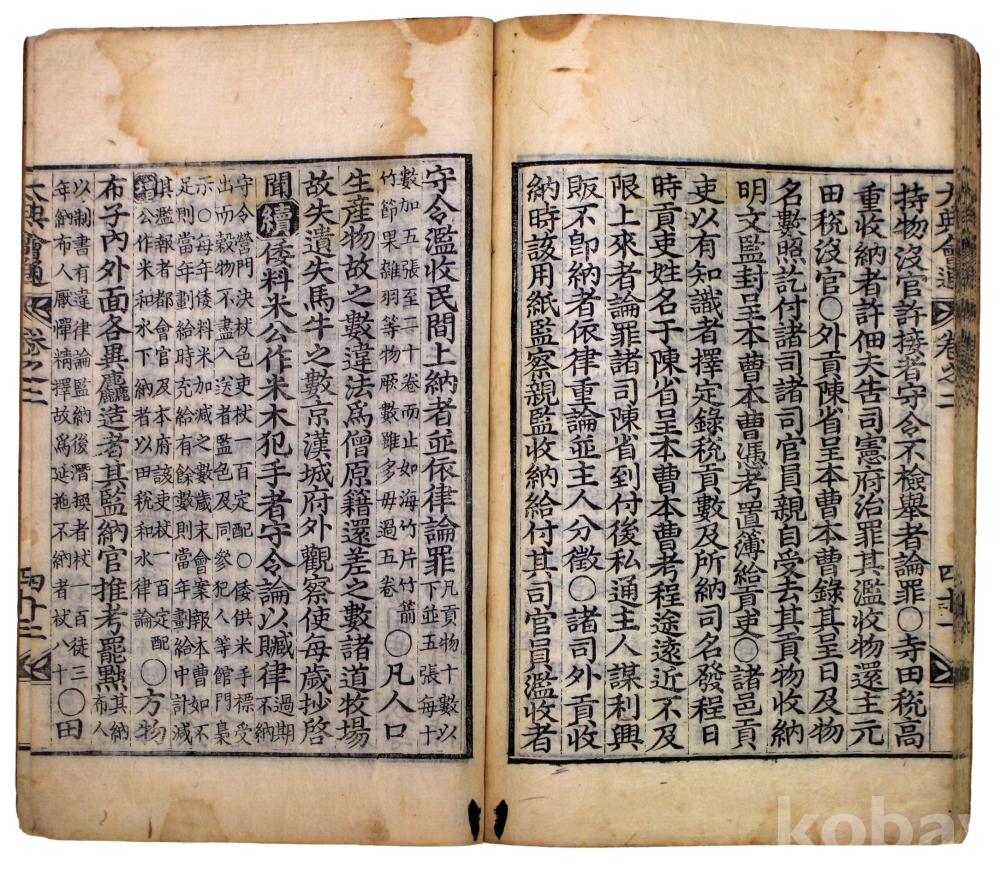 大典會通 卷之二
持物沒官許接者守令不檢擧者論罪〇寺田稅高
重收納者許佃夫告司憲府治罪其濫收物還主元
田稅沒官〇外貢陳省呈本曹本曹錄其呈日及物
名數照訖付諸司諸司官員親自受去其貢物收納
明文監封呈本曹憑考置簿給貢吏〇諸邑貢
吏以有知識者擇定錄稅貢數及所納司名發程日
時貢吏姓名于陳省呈本曹本曹考程途遠近不及
限上來者論罪諸司陳省到付後私通主人謀利興
販不卽納者依律重論並主人分徵〇諸司外貢收
納時該用紙監察親監收納給付其司官員濫收者
守令濫收民間上納者並依律論罪凡貢物十數以下並五張每十
數加五張至二十卷而止如海竹片竹箭竹節果雜羽等物厥數雖多毋過五卷〇凡人口
生産物故之數違法爲僧原籍還差之數諸道牧場
故失遺失馬牛之數京漢城府外觀察使每歲抄啓
聞續倭料米公作米木犯手者守令論以贓律過期不納
守令營門決杖色吏杖一百定配〇倭供米手標受
出而穀物不盡入送者監色及同參犯人等館門梟
示〇每年倭料米加減之數歲末會案報本曹如不
足則當年劃給時充給有餘數則當年劃給中計減
其濫報者都會官及本府該吏杖一百定配
公作米和水下納者以田稅和水律論〇方物
布子內外面各異麤造者其監納官推考罷黜其納布人
以制書有違律論監納後潛換者杖一百徒三
年納布人厭憚精擇故爲延拖不納者杖八十〇田
大典會通 卷之二 四十三
kobay